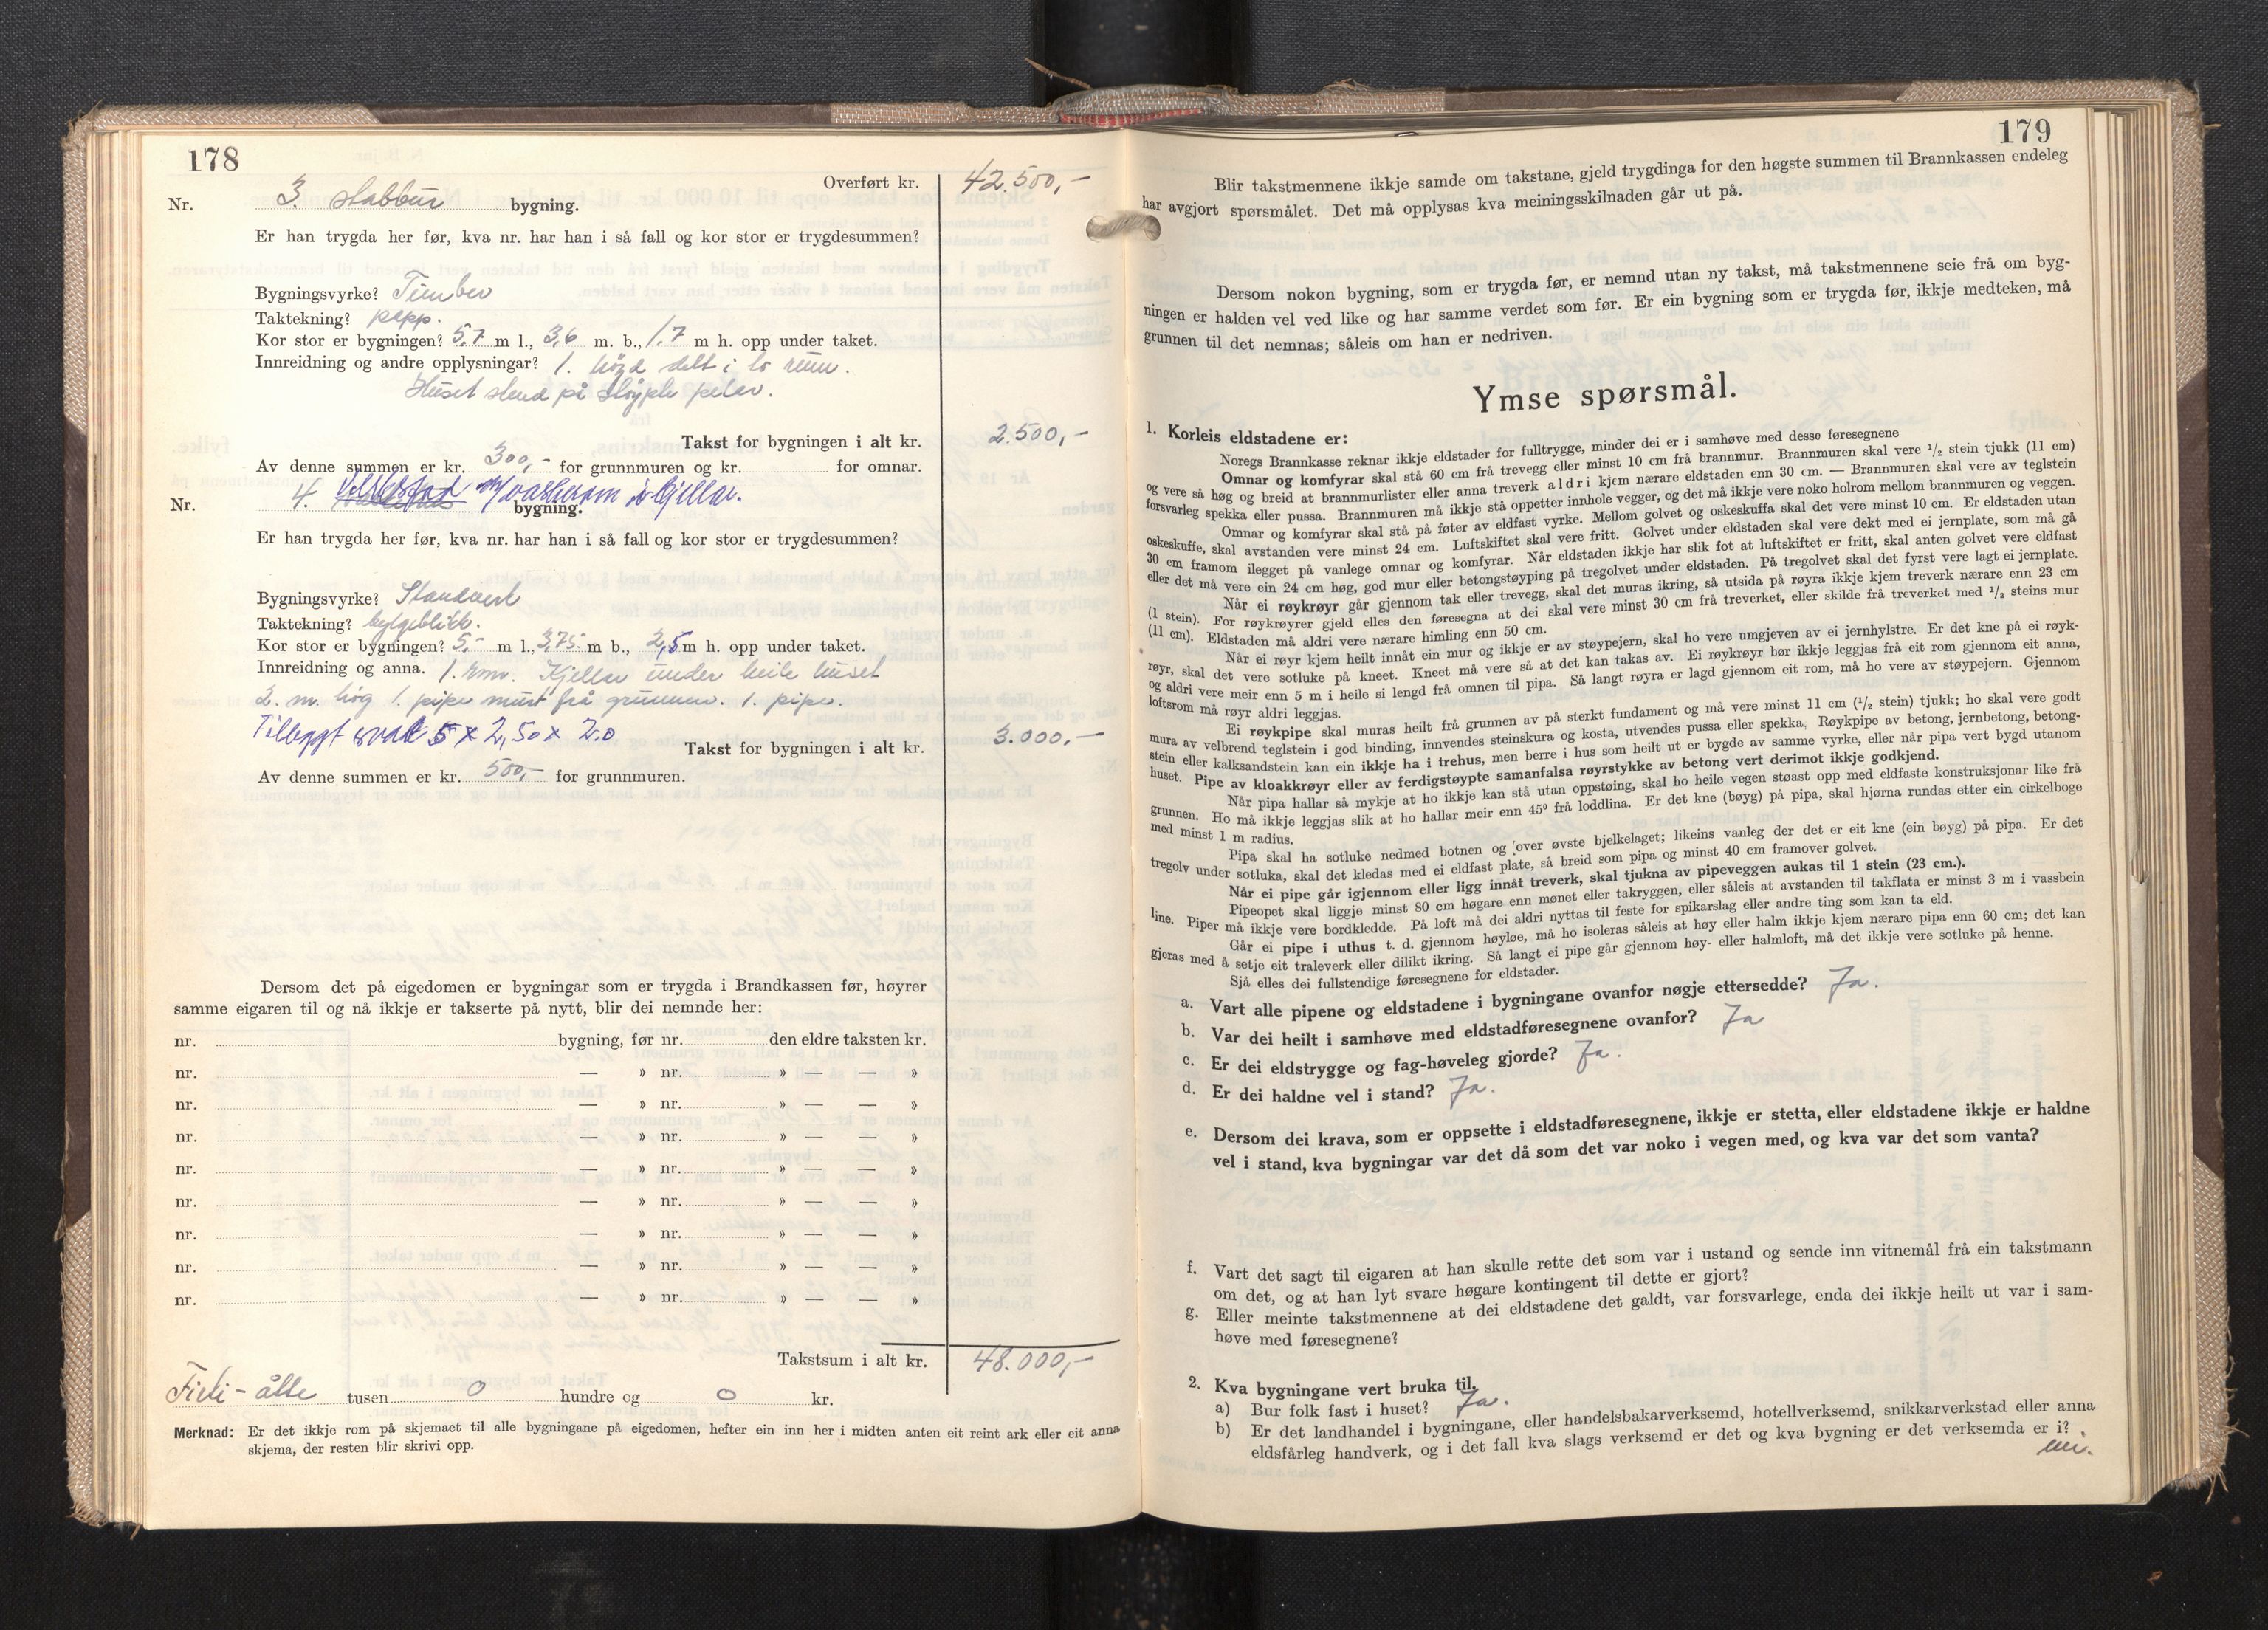 178
Overført kr. 42.500,-
Nr. 3. Stabbur bygning.
Er han trygda her før, kva nr. har han i så fall og kor stor er trygdesummen?
Bygningsvyrke? Timber
Taktekning? papp.
Kor stor er bygningen? 5,7 m l., 3,6 m. b., 1,7 m h. opp under taket.
Innreidning og andre opplysningar? 1. högd delt i to rum.
Huset stend på støypte pelar.
Takst for bygningen i alt kr. 2.500,-
Av denne summen er kr. 300,- for grunnmuren og kr. for omnar.
Nr. 4. m/vaskerom i kjellar. bygning.
Er han trygda her før, kva nr. har han i så fall og kor stor er trygdesummen?
Bygningsvyrke? Standverk
Taktekning? bylgeblikk.
Kor stor er bygningen? 5,- m l., 3,75 m b., 2,5 m h. opp under taket.
Innreidning og anna. 1. rum. Kjellar under heile huset
2. m. høg 1. pipe murt frå grunnen. 1. pipe.
Tilbygt 5 x 2,50 x 2.0
Takst for bygningen i alt kr. 3.000,-
Av denne summen er kr. 500,- for grunnmuren.
Dersom det på eigedomen er bygningar som er trygda i Brandkassen før, høyrer
samme eigaren til og nå ikkje er takserte på nytt, blir dei nemnde her:
nr. bygning, før nr. den eldre taksten kr.
nr. — » nr. » — — »
nr. — » nr. » — — »
nr. — » nr. » — — »
nr. — » nr. » — — »
nr. — » nr. » — — »
nr. — » nr. » — — »
nr. — » nr. » — — »
nr. — » nr. » — — »
Takstsum i alt kr. 48.000,-
Firti-åtte tusen 0 hundre og 0 kr.
Merknad: Er det ikkje rom på skjemaet til alle bygningane på eigedomen, hefter ein inn her i midten anten eit reint ark eller eit anna
skjema, der resten blir skrivi opp.
179
Blir takstmennene ikkje samde om takstane, gjeld trygdinga for den høgste summen til Brannkassen endeleg
har avgjort spørsmålet. Det må opplysas kva meiningsskilnaden går ut på.
Dersom nokon bygning, som er trygda før, er nemnd utan ny takst, må takstmennene seie frå om byg-
ningen er halden vel ved like og har samme verdet som før. Er ein bygning som er trygda før, ikkje medteken, må
grunnen til det nemnas; såleis om han er nedriven.
Ymse spørsmål.
1. Korleis eldstadene er:
Noregs Brannkasse reknar ikkje eldstader for fulltrygge, minder dei er i samhøve med desse føresegnene
Omnar og komfyrar skal stå 60 cm frå trevegg eller minst 10 cm frå brannmur. Brannmuren skal vere 1/2 stein tjukk (11 cm)
og vere så høg og breid at brannmurlister eller anna treverk aldri kjem nærare eldstaden enn 30 cm. — Brannmuren skal vere av teglstein
forsvarleg spekka eller pussa. Brannmuren må ikkje stå oppetter innhole vegger, og det må ikkje vere noko holrom mellom brannmuren og veggen.
Omnar og komfyrar skal stå på føter av eldfast vyrke. Mellom golvet og oskeskuffa skal det vere minst 10 cm. Er eldstaden utan
oskeskuffe, skal avstanden vere minst 24 cm. Luftskiftet skal vere fritt. Golvet under eldstaden skal vere dekt med ei jernplate, som må gå
30 cm framom ilegget på vanlege omnar og komfyrar. Når eldstaden ikkje har slik fot at luftskiftet er fritt, skal anten golvet vere eldfast
eller det må vere ein 24 cm høg, god mur eller betongstøyping på tregolvet under eldstaden. På tregolvet skal det fyrst vere lagt ei jernplate.
Når ei røykrøyr går gjennom tak eller trevegg, skal det muras ikring, så utsida på røyra ikkje kjem treverk nærare enn 23 cm
(1 stein). For røykrøyrer gjeld elles den føresegna at dei skal vere minst 30 cm frå treverket, eller skilde frå treverket med 1/2 steins mur
(11 cm). Eldstaden må aldri vere nærare himling enn 50 cm.
Når ei røyr kjem heilt innåt ein mur og ikkje er av støypejern, skal ho vere umgjeven av ei jernhylstre. Er det kne på ei røyk-
røyr, skal det vere sotluke på kneet. Kneet må vere så at det kan takas av. Ei røykrøyr bør ikkje leggjas frå eit rom gjennom eit anna,
og aldri vere meir enn 5 m i heile si lengd frå omnen til pipa. Så langt røyra er lagd gjennom eit rom, må ho vere av støypejern. Gjennom
loftsrom må røyr aldri leggjas.
Ei røykpipe skal muras heilt frå grunnen av på sterkt fundament og må vere minst 11 cm (1/2 stein) tjukk; ho skal vere godt
mura av velbrend teglstein i god binding, innvendes steinskura og kosta, utvendes pussa eller spekka. Røykpipe av betong, jernbetong, betong-
stein eller kalksandstein kan ein ikkje ha i trehus, men berre i hus som heilt ut er bygde av samme vyrke, eller når pipa vert bygd utanom
huset. Pipe av kloakkrøyr eller av ferdigstøypte samanfalsa røyrstykke av betong vert derimot ikkje godkjend.
Når pipa hallar så mykje at ho ikkje kan stå utan oppstøing, skal ho heile vegen støast opp med eldfaste konstruksjonar like frå
grunnen. Ho må ikkje leggjas slik at ho hallar meir enn 45° frå loddlina. Er det kne (bøyg) på pipa, skal hjørna rundas etter ein cirkelboge
med minst 1 m radius.
Pipa skal ha sotluke nedmed botnen og over øvste bjelkelaget; likeins vanleg der det er eit kne (ein bøyg) på pipa. Er det
tregolv under sotluka, skal det kledas med ei eldfast plate, så breid som pipa og minst 40 cm framover golvet.
Når ei pipe går igjennom eller ligg innåt treverk, skal tjukna av pipeveggen aukas til 1 stein (23 cm.).
Pipeopet skal liggje minst 80 cm høgare enn mønet eller takryggen, eller såleis at avstanden til takflata er minst 3 m i vassbein
line. Piper må ikkje vere bordkledde. På loft må dei aldri nyttas til feste for spikarslag eller andre ting som kan ta eld.
Går ei pipe i uthus t. d. gjennom høyløe, må ho isoleras såleis at høy eller halm ikkje kjem nærare pipa enn 60 cm; det kan
gjeras med å setje eit traleverk eller dilikt ikring. Så langt ei pipe går gjennom høy- eller halmloft, må det ikkje vere sotluke på henne.
Sjå elles dei fullstendige føresegnene for eldstader.
a. Vart alle pipene og eldstadene i bygningane ovanfor nøgje ettersedde? Ja.
b. Var dei heilt i samhøve med eldstadføresegnene ovanfor? Ja
c. Er dei eldstrygge og fag-høveleg gjorde? Ja.
d. Er dei haldne vel i stand? Ja.
e. Dersom dei krava, som er oppsette i eldstadføresegnene, ikkje er stetta, eller eldstadene ikkje er haldne
vel i stand, kva bygningar var det då som det var noko i vegen med, og kva var det som vanta?
f. Vart det sagt til eigaren at han skulle rette det som var i ustand og sende inn vitnemål frå ein takstmann
om det, og at han lyt svare høgare kontingent til dette er gjort?
g. Eller meinte takstmennene at dei eldstadene det galdt, var forsvarlege, enda dei ikkje heilt ut var i sam-
høve med føresegnene?
2. Kva bygningane vert bruka til.
a) Bur folk fast i huset? Ja.
b) Er det landhandel i bygningane, eller handelsbakarverksemd, hotellverksemd, snikkarverkstad eller anna
eldsfårleg handverk, og i det fall kva slags verksemd er det og kva bygning er det verksemda er i?
nei.